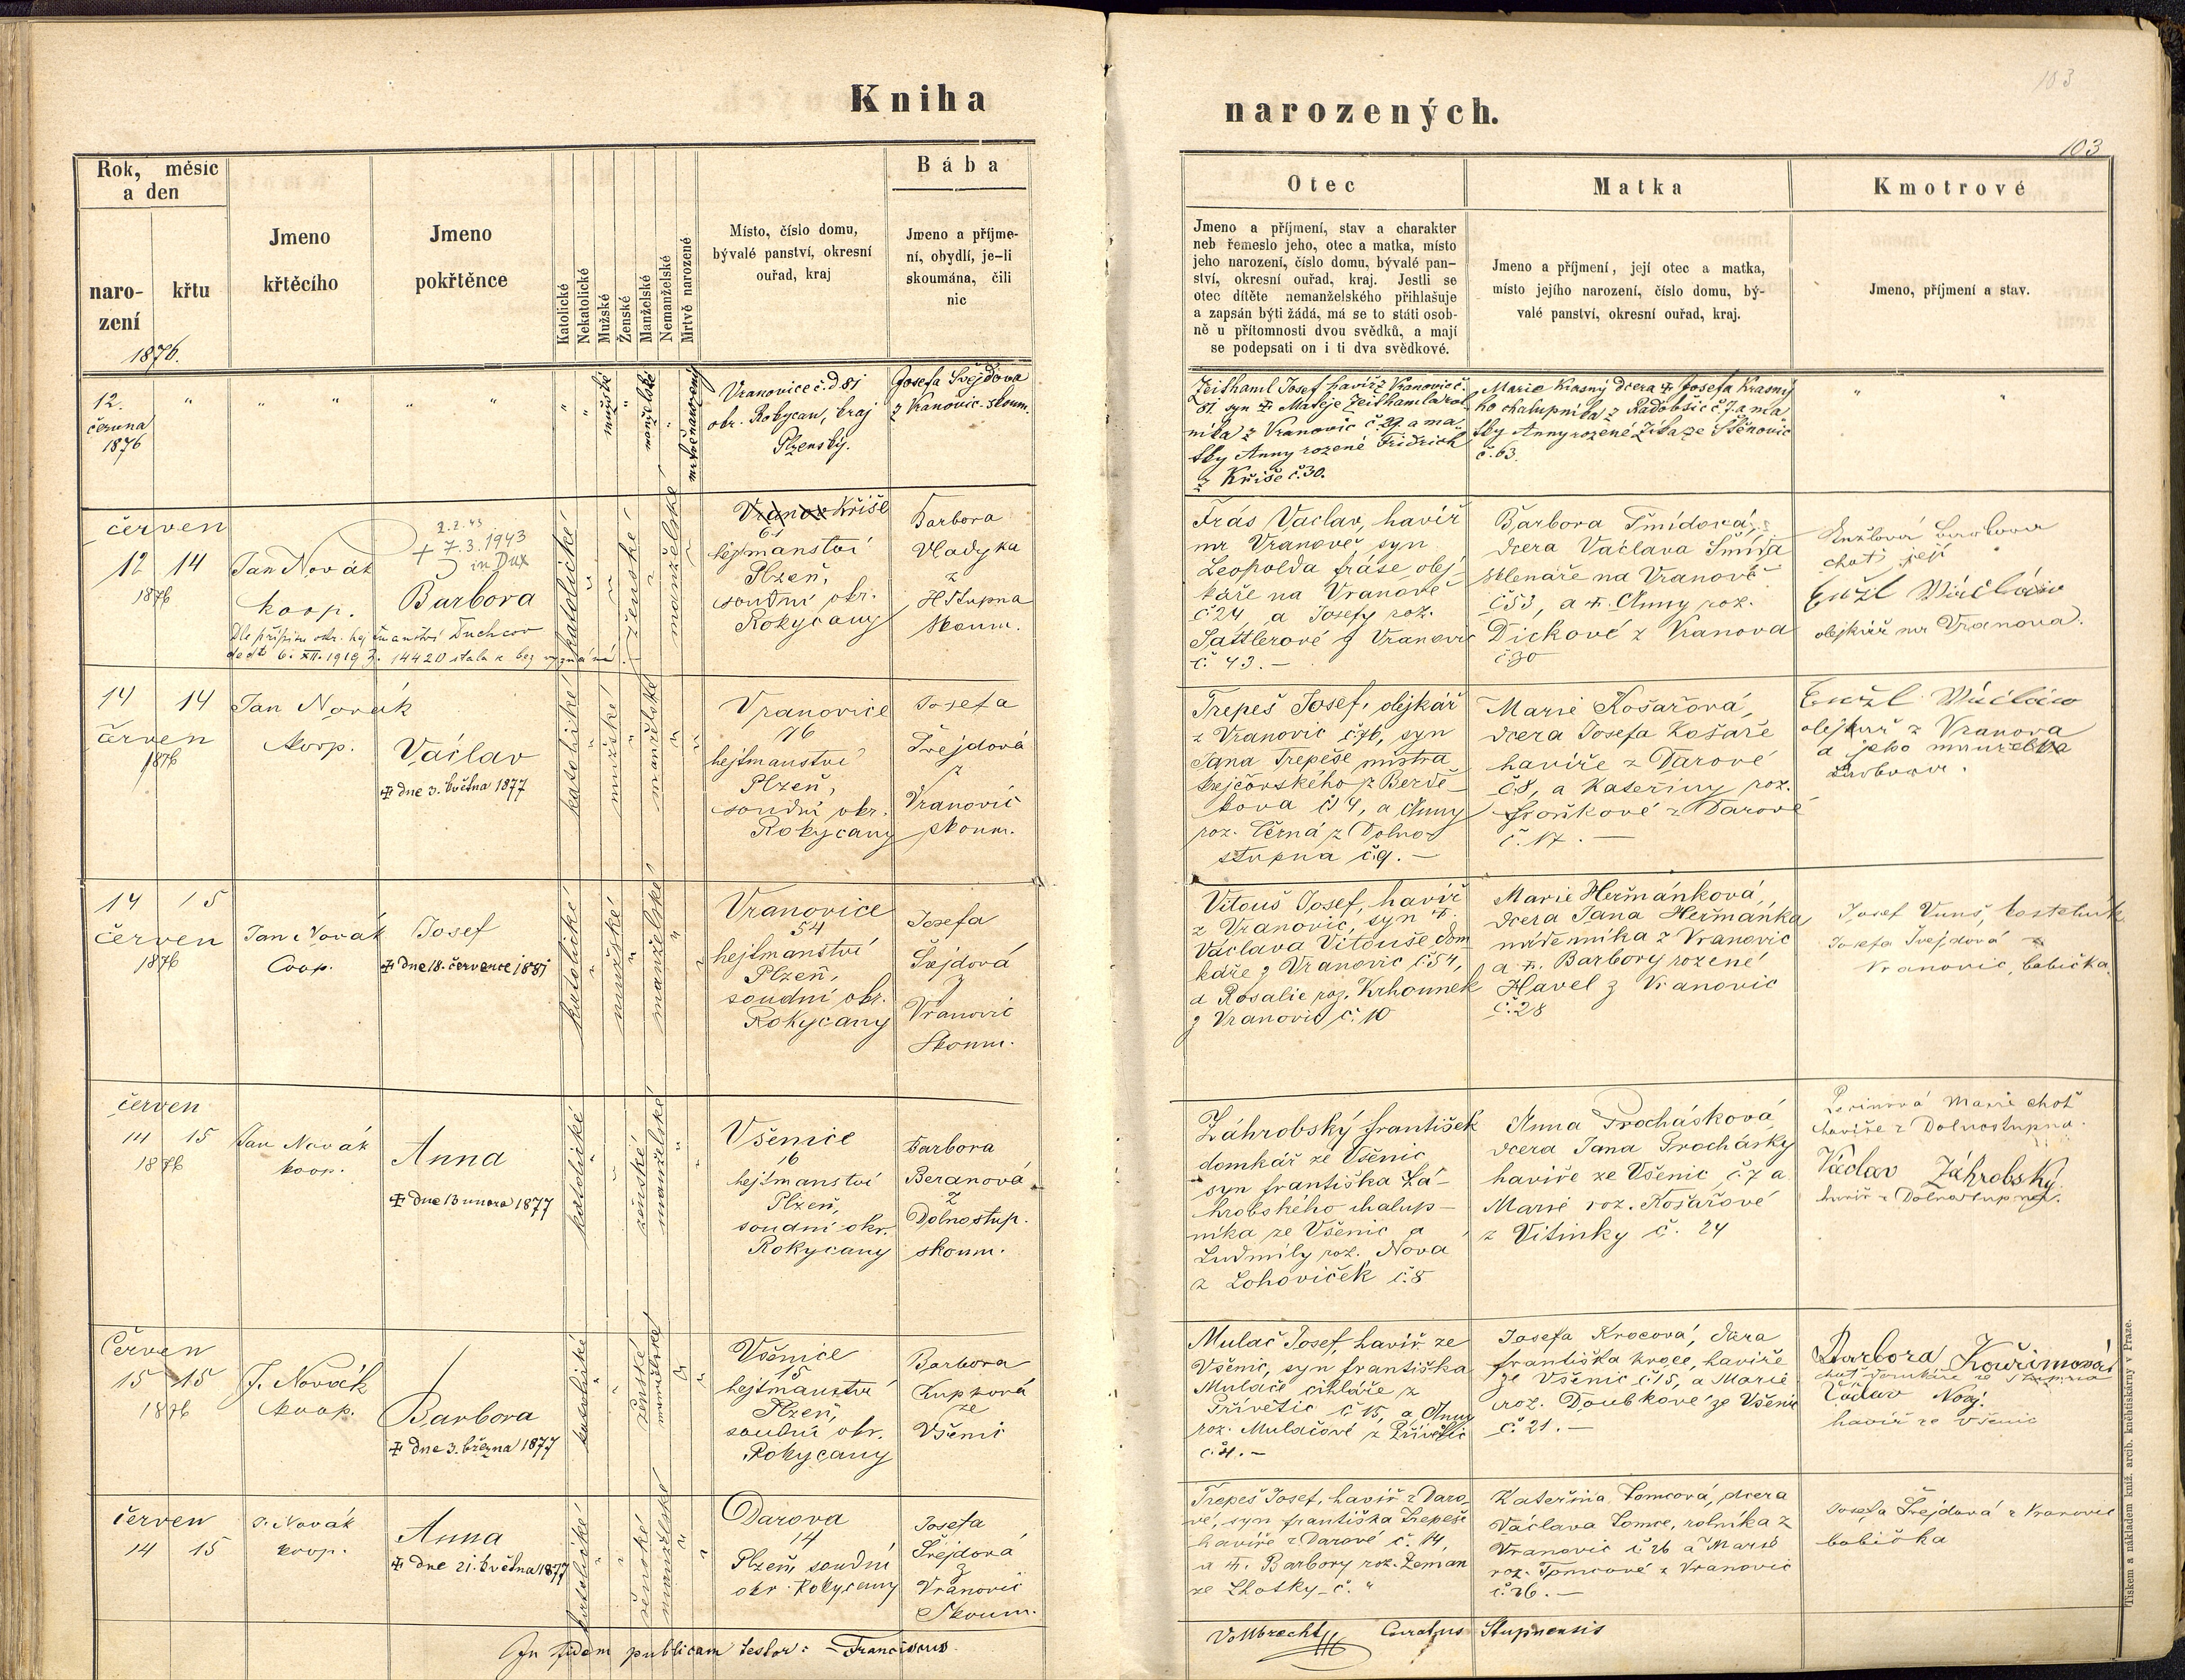 Kniha
narozených.
103
103
Rok, měsíc
a den
naro-
zení
křtu
1876.
Jmeno
křtěcího
Jmeno
pokřtěnce
Katolické
Nekatolické
Mužské
Ženské
Manželské
Nemanželské
Mrtvě narozené
Místo, číslo domu,
bývalé panství, okresní
ouřad, kraj
Bába
Jmeno a příjme-
ní, obydlí, je-li
skoumána, čili
nic
Otec
Jmeno a příjmení, stav a charakter
neb řemeslo jeho, otec a matka, místo
jeho narození, číslo domu, bývalé pan-
ství, okresní ouřad, kraj. Jestli se
otec dítěte nemanželského přihlašuje
a zapsán býti žádá, má se to státi osob-
ně u přítomnosti dvou svědků, a mají
se podepsati on i ti dva svědkové.
Matka
Jmeno a příjmení, její otec a matka,
místo jejího narození, číslo domu, bý-
valé panství, okresní ouřad, kraj.
Kmotrové
Jmeno, příjmení a stav.
12.
června
1876
" " " " "
mužské
manželské
mrtvě narozený
Vranovice č.d 81
okr. Rokycan, kraj
Plzenský.
Josefa Švejdova
z Vranovic skoum.
Zeithaml Josef havíř z Vranovic č.
81. syn Matěje Zeithamla rol
níka z Vranovic č. 29 a ma
tky Anny rozené Fridrich
z Kříše č. 30.
Marie Krasný dcera Josefa Krasný
ho chalupníka z Radobšic č. 7 a ma
tky Anny rozené Zíka ze Stěnovic
č. 63.
červen
12 14
1876
Jan Novák
koop.
2.2.43
+ 7.3.1943
in Dux
Barbora
Dle přípisu okr. hejtmanství Duchcov
de dto 6. XII. 1919 z. 14420 stala se bez vyznání.
katolické
ženské
manželské
Vranov Kříše
61
hejtmanství
Plzeň,
soudní okr.
Rokycany
Barbora
Vladyka
z
H Stupna
skoum.
Frás Vaclav, havíř
na Vranově, syn
Leopolda fráse, olej-
káře na Vranově
č 24, a Josefy roz.
Sattlerové z Vranovic
č. 43. —
Barbora Šmídová,
dcera Václava Šmída
sklenáře na Vranově
č 53, a Anny roz.
Dickové z Vranova
č 30
Enžlová Barbora
choť její
Enžl Václav
olejkář na Vranova.
14 14
červen
1876
Jan Novák
koop.
Václav
dne 3. května 1877
katolické
mužské
manželské
Vranovice
76
hejtmanství
Plzeň,
soudní okr.
Rokycany
Josefa
Švejdová
z
Vranovic
skoum.
Trepeš Josef, olejkář
z Vranovic č. 76, syn
Jana Trepeše mistra
krejčovského z Berdě-
kova č 4, a Anny
roz. Černá z Dolno
stupna č. 9. —
Marie Košařová,
dcera Josefa Košaře
havíře z Darové
č. 8, a Kateřiny roz.
froňkové z Darové
č. 17. —
Enžl Václav
olejkář z Vranova
a jeho manželka
Barbora.
14 15
červen
1876
Jan Novák
Coop.
Josef
dne 18. července 1881
katolické
mužské
manželské
Vranovice
54
hejtmanství
Plzeň,
soudní okr.
Rokycany
Josefa
Švejdová
z
Vranovic
Skoum.
Vitouš Josef, havíř
z Vranovic, syn
Václava Vitouše dom
káře z Vranovic č. 54,
a Rosalie roz. Krhounek
z Vranovic č. 10
Marie Heřmánková,
dcera Jana Heřmánka
nádenníka z Vranovic
a Barbory rozené
Havel z Vranovic
č. 28
Josef Vuns, kostelník
Josefa Švejdová z
Vranovic, babička
červen
14 15
1876
Jan Novák
koop.
Anna
dne 13 unora 1877
katolické
ženské
manželské
Všenice
16
hejtmanství
Plzeň,
soudní okr.
Rokycany
Barbora
Beranová
z
Dolnostup.
skoum.
Záhrobský františek
domkář ze Všenic
syn františka Zá-
hrobského chalup-
níka ze Všenic a
Ludmily roz. Nova
z Lohoviček č. 8
Anna Prochásková
dcera Jana Procházky
havíře ze Všenic č. 7 a
Marie roz. Košařové
z Vitinky č. 24
Marie choť
havíře z Dolnostupna.
Václav Záhrobský
havíř z Dolnostupna.
Červen
15 15
1876
J. Novák
koop.
Barbora
dne 3. března 1877
katolické
ženské
manželské
Všenice
15
hejtmanství
Plzeň,
soudní okr.
Rokycany
Barbora
Kupková
ze
Všenic
Mulač Josef, havíř ze
Všenic, syn františka
Mulače cihláře z
Přívětic č 15, a Anny
roz. Mulačové z Přívětic
č. 4. —
Josefa Krocová, dcera
františka kroce, havíře
ze Všenic č 15, a Marie
roz. Doubkové ze Všenic
č. 21. —
Barbora Kouřimová
choť domkáře ze Stupna
Václav Nový
havíř ze Všenic
červen
14 15
J. Novák
koop.
Anna
dne 21. května 1877
katolické
ženské
manželské
Darova
14
Plzeň, soudní
okr. Rokycany
Josefa
Švejdová
z
Vranovic
Skoum.
Trepeš Josef, havíř z Daro-
vé, syn františka Trepeše
havíře z Darové č. 14,
a Barbory roz. Zeman
ze Lhotky č. "
Kateřina Tomcová, dcera
Václava Tomce, rolníka z
Vranovic č 26 a Marie
roz. Tomcové z Vranovic
č. 26. —
Josefa Švejdová z Vranovic
babička
In fidem publicam testor: Franciscus
Vollbrecht Curatus Stupnensis
Tiskem a nákladem kníž. arcib. kněhtiskárny v Praze.